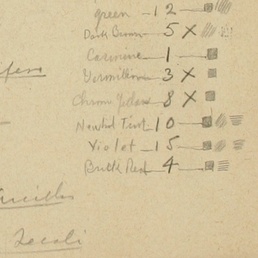 green — 12 —
Dark Brown — 5 X
Carmine — 1 —
Vermilion — 3 X
Chrome Yellow — 8 X
Neutral Tint — 10
Violet — 15
Brick Red — 4